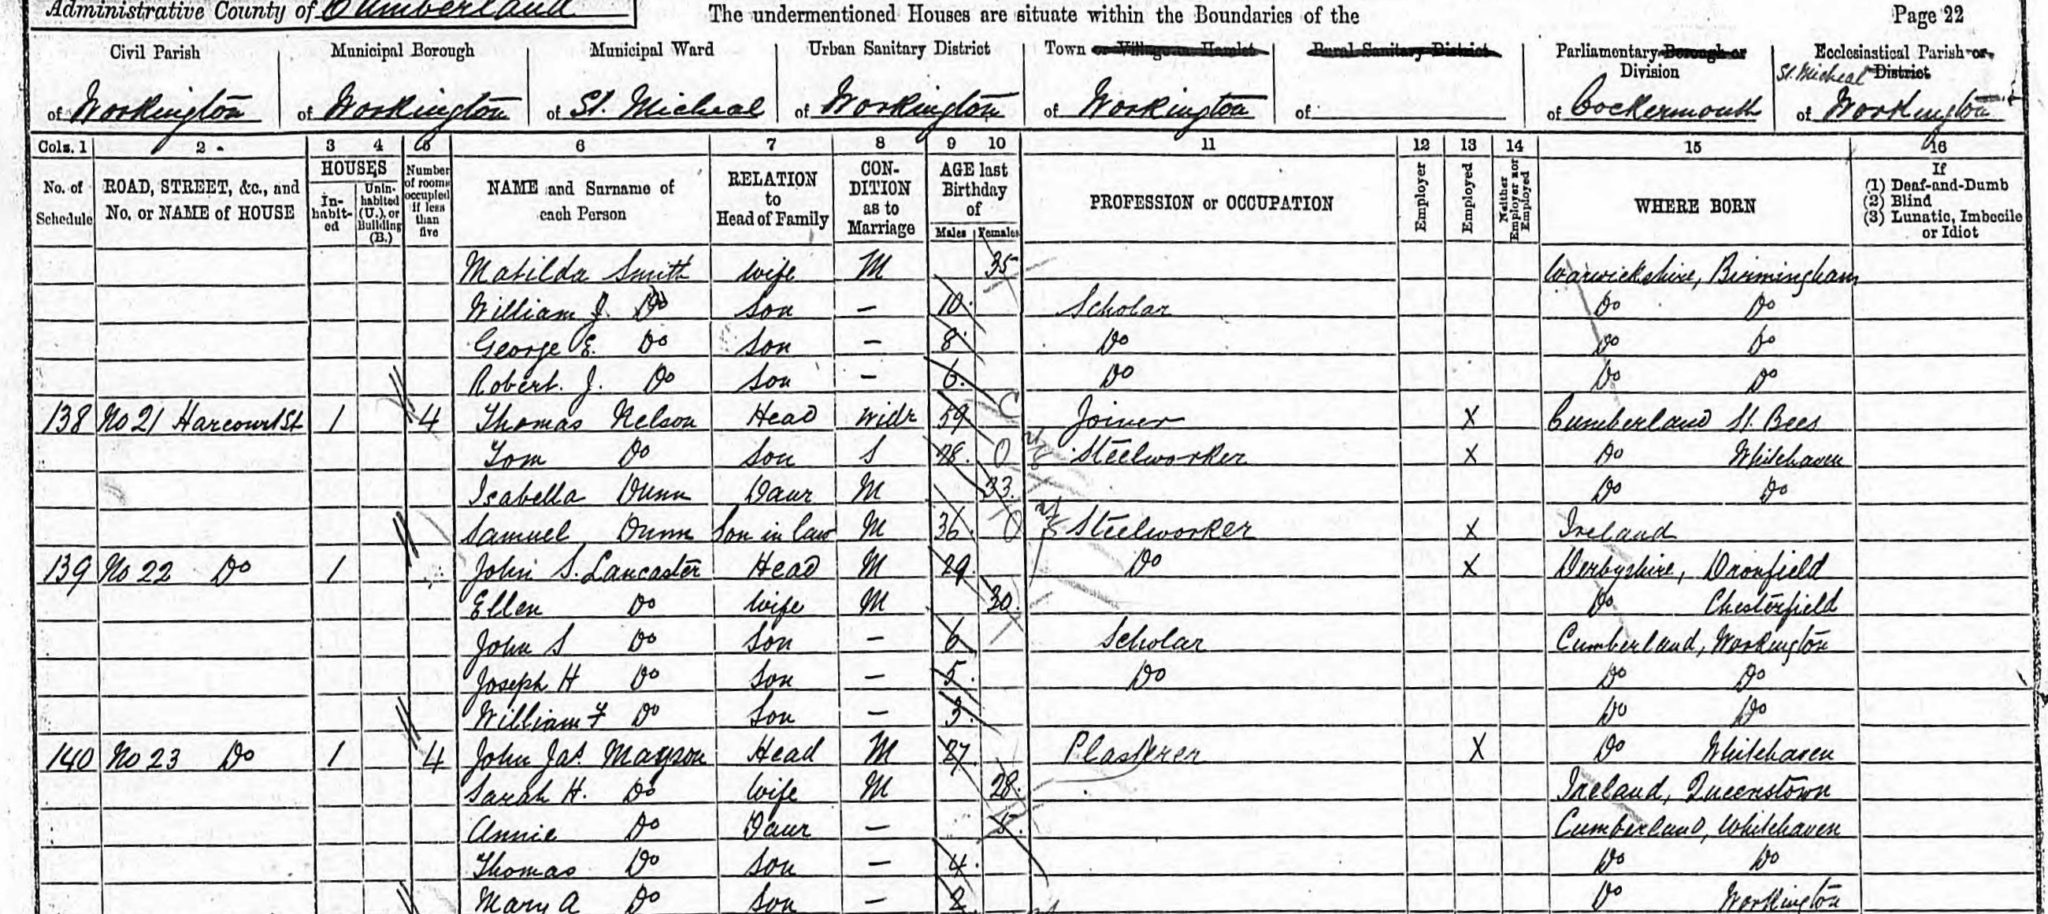 Administrative County of Cumberland
The undermentioned Houses are situate within the Boundaries of the
Page 22
Civil Parish of Workington
Municipal Borough of Workington
Municipal Ward of St. Micheal
Urban Sanitary District of Workington
Town or Village or Hamlet of Workington
Rural Sanitary District of
Parliamentary Borough or Division of Cockermouth
Ecclesiastical Parish or District of St. Micheal Workington
Cols. 1 2 3 4 5 6 7 8 9 10 11 12 13 14 15 16
No. of Schedule
ROAD, STREET, &c., and No. or NAME of HOUSE
HOUSES
In-habit-ed
Unin-habited (U.), or Building (B.)
Number of rooms occupied if less than five
NAME and Surname of each Person
RELATION to Head of Family
CON-DITION as to Marriage
AGE last Birthday of
Males Females
PROFESSION or OCCUPATION
Employer
Employed
Neither Employer nor Employed
WHERE BORN
If (1) Deaf-and-Dumb (2) Blind (3) Lunatic, Imbecile or Idiot
Matilda Smith wife M 35 Warwickshire, Birmingham
William J. Do son — 10 Scholar Do Do
George E. Do son — 8 Do Do Do
Robert. J. Do son — 6 Do Do Do
138 No 21 Harcourt St 1 4 Thomas Nelson Head widr 59 Joiner X Cumberland St. Bees
Tom Do son S 28 Steelworker X Do Whitehaven
Isabella Dunn Daur M 33 Do Do
Samuel Dunn Son in law M 36 Steelworker X Ireland
139 No 22 Do 1 John S. Lancaster Head M 29 Do X Derbyshire, Dronfield
Ellen Do wife M 30 Do Chesterfield
John S Do son — 6 Scholar Cumberland, Workington
Joseph H Do son — 5 Do Do Do
William F Do son — 3 Do Do
140 No 23 Do 1 4 John Jas. Mayson Head M 27 Plasterer X Do Whitehaven
Sarah H. Do wife M 28 Ireland, Queenstown
Annie Do Daur — 5 Cumberland, Whitehaven
Thomas Do son — 4 Do Do
Mary A Do son — 2 Do Workington